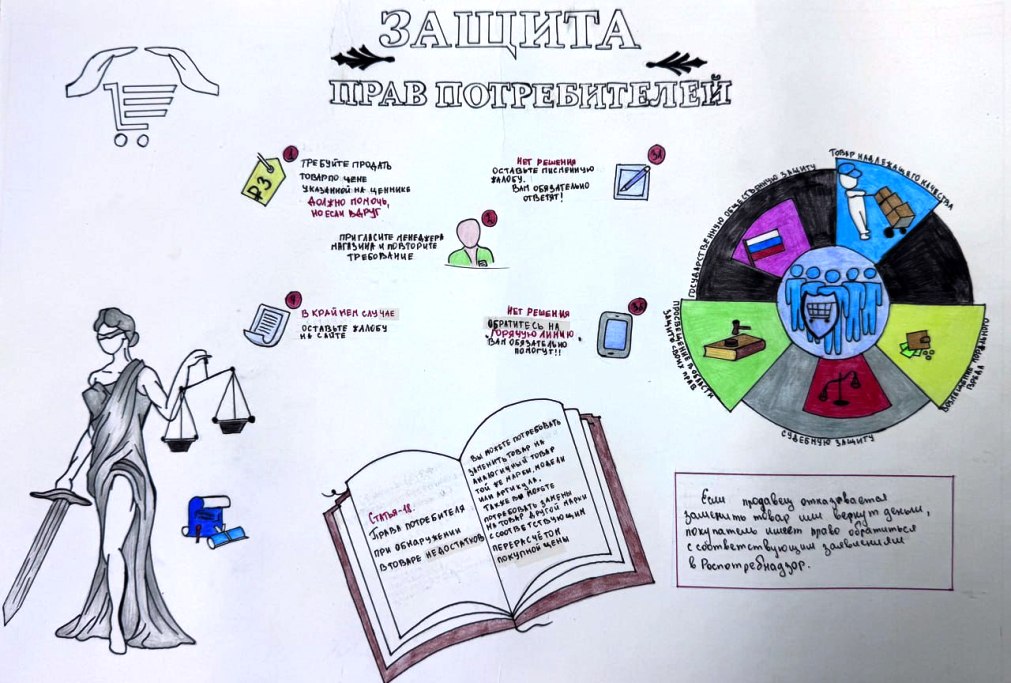 ЗАЩИТА
ПРАВ ПОТРЕБИТЕЛЕЙ
1
ТРЕБУЙТЕ ПРОДАТЬ
ТОВАР ПО ЦЕНЕ
УКАЗАННОЙ НА ЦЕННИКЕ
ДОЛЖНО ПОМОЧЬ,
НО ЕСЛИ ВДРУГ
2
ПРИГЛАСИТЕ МЕНЕДЖЕРА
МАГАЗИНА И ПОВТОРИТЕ
ТРЕБОВАНИЕ
3А
НЕТ РЕШЕНИЯ
ОСТАВЬТЕ ПИСМЕННУЮ
ЖАЛОБУ.
ВАМ ОБЯЗАТЕЛЬНО
ОТВЕТЯТ!
НЕТ РЕШЕНИЯ
ОБРАТИТЕСЬ НА
"ГОРЯЧУЮ ЛИНИЮ"
ВАМ ОБЯЗАТЕЛЬНО
ПОМОГУТ!!
4
В КРАЙНЕМ СЛУЧАЕ
ОСТАВЬТЕ ЖАЛОБУ
НА САЙТЕ
ТОВАР НАДЛЕЖАЩЕГО КАЧЕСТВА
ГОСУДАРСТВЕННУЮ ОБЩЕСТВЕННУЮ ЗАЩИТУ
ПРОСВЕЩЕНИЕ В ОБЛАСТИ
ЗАЩИТЫ СВОИХ ПРАВ
СУДЕБНУЮ ЗАЩИТУ
ВОЗМЕЩЕНИЕ МОРАЛЬНОГО
ВРЕДА
СТАТЬЯ-18.
ПРАВА ПОТРЕБИТЕЛЯ
ПРИ ОБНАРУЖЕНИИ
В ТОВАРЕ НЕДОСТАТКОВ
ВЫ МОЖЕТЕ ПОТРЕБОВАТЬ
ЗАМЕНИТЬ ТОВАР НА
АНАЛОГИЧНЫЙ ТОВАР
ТОЙ ЖЕ МАРКИ, МОДЕЛИ
ИЛИ АРТИКУЛА.
ТАКЖЕ ВЫ МОЖЕТЕ
ПОТРЕБОВАТЬ ЗАМЕНЫ
НА ТОВАР ДРУГОЙ МАРКИ
С СООТВЕТСТВУЮЩИМ
ПЕРЕРАСЧЁТОМ
ПОКУПНОЙ ЦЕНЫ
Если продавец отказывается
заменить товар или вернуть деньги,
покупатель имеет право обратиться
с соответствующим заявлениям
в Роспотребнадзор.